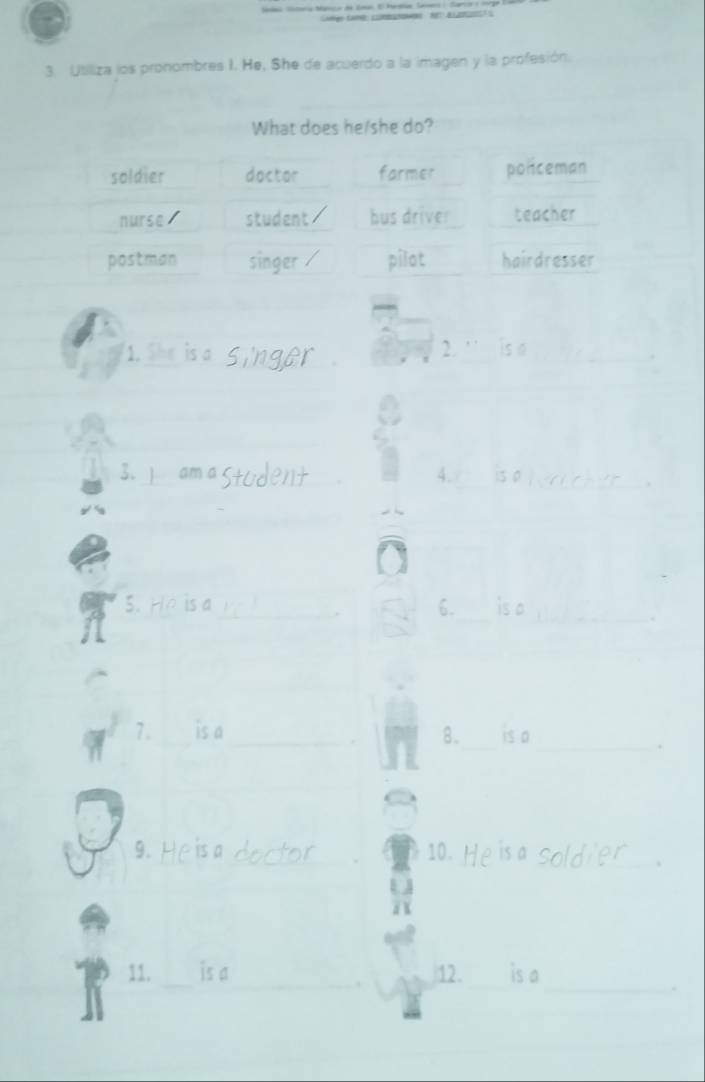 3. Utiliza los pronombres I. He, She de acuerdo a la imagen y la profesión.
What does he/she do?
soldier doctor farmer policeman
nurse / student / bus driver teacher
postman singer / pilot hairdresser
1. She is a singer . 2. '' is a ____.
3. I am a Student . 4. is a ____.
5. He is a ____. 6. ____ is a ____.
7. ____ is a ____. 8. ____ is a ____.
9. He is a doctor . 10. He is a soldier .
11. ____ is a ____. 12. ____ is a ____.